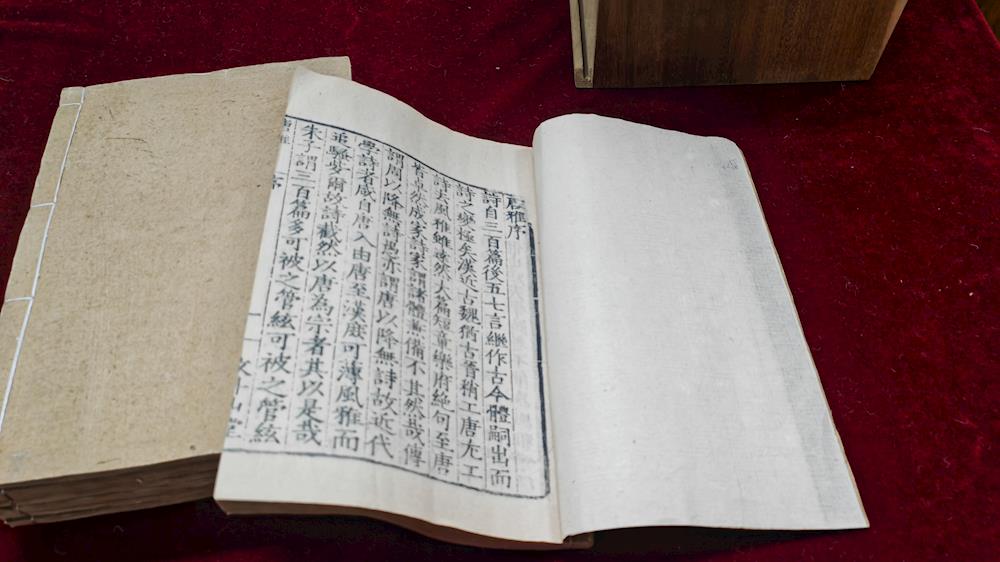 唐雅序
詩自三百篇後五七言繼作古今體嗣出而
詩之變極矣漢近古魏猶古晉稍工唐尤工
詩去風雅雖遠然大篇短章樂府絕句至唐
者卓然成家詩家謂諸體兼備不其然哉傳
謂周以降無詩愚亦謂唐以降無詩故近代
學詩者咸自唐入由唐至漢庶可薄風雅而
追騷些爾故詩截然以唐為宗者其以是哉
朱子謂三百篇多可被之管絃可被之管絃
唐雅
序
文斗山堂